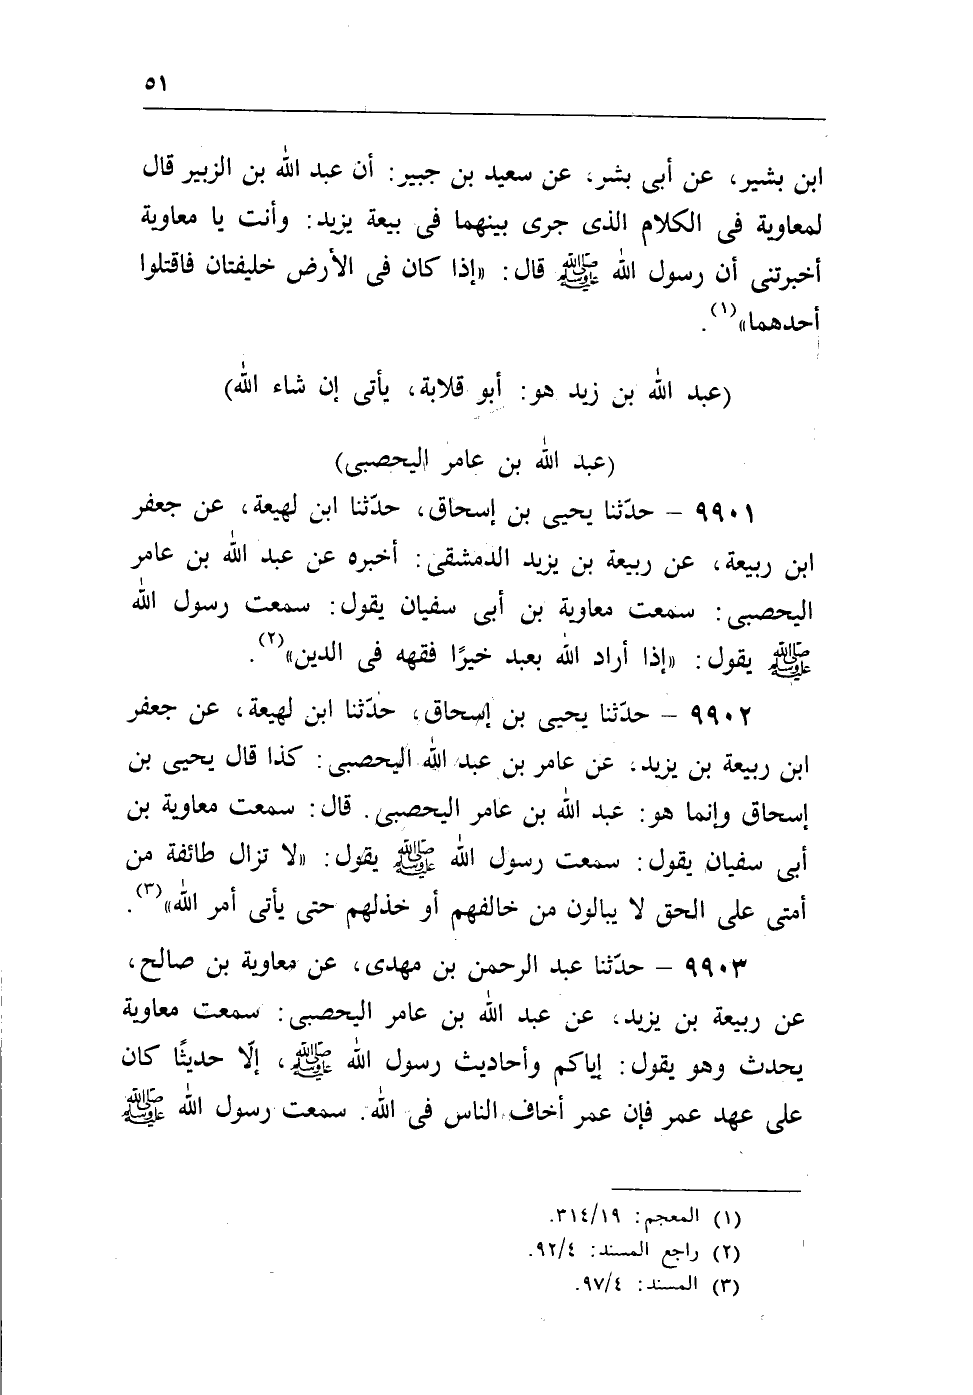 ٥١
ابن بشير، عن أبى بشر، عن سعيد بن جبير: أن عبد الله بن الزبير قال
لمعاوية فى الكلام الذى جرى بينهما فى بيعة يزيد: وأنت يا معاوية
أخبرتنى أن رسول الله ﷺ قال: «إذا كان فى الأرض خليفتان فاقتلوا
أحدهما»(١).
(عبد الله بن زيد هو: أبو قلابة، يأتى إن شاء الله)
(عبد الله بن عامر اليحصبى)
٩٩٠١ – حدّثنا يحيى بن إسحاق، حدّثنا ابن لهيعة، عن جعفر
ابن ربيعة، عن ربيعة بن يزيد الدمشقى: أخبره عن عبد الله بن عامر
اليحصبى: سمعت معاوية بن أبى سفيان يقول: سمعت رسول الله
ﷺ يقول: «إذا أراد الله بعبد خيرًا فقهه فى الدين»(٢).
٩٩٠٢ – حدّثنا يحيى بن إسحاق، حدّثنا ابن لهيعة، عن جعفر
ابن ربيعة بن يزيد، عن عامر بن عبد الله اليحصبى: كذا قال يحيى بن
إسحاق وإنما هو: عبد الله بن عامر اليحصبى. قال: سمعت معاوية بن
أبى سفيان يقول: سمعت رسول الله ﷺ يقول: «لا تزال طائفة من
أمتى على الحق لا يبالون من خالفهم أو خذلهم حتى يأتى أمر الله»(٣).
٩٩٠٣ – حدّثنا عبد الرحمن بن مهدى، عن معاوية بن صالح،
عن ربيعة بن يزيد، عن عبد الله بن عامر اليحصبى: سمعت معاوية
يحدث وهو يقول: إياكم وأحاديث رسول الله ﷺ، إلّا حديثًا كان
على عهد عمر فإن عمر أخاف الناس فى الله. سمعت رسول الله ﷺ
(١) المعجم: ٣١٤/١٩.
(٢) راجع المسند: ٩٢/٤.
(٣) المسند: ٩٧/٤.